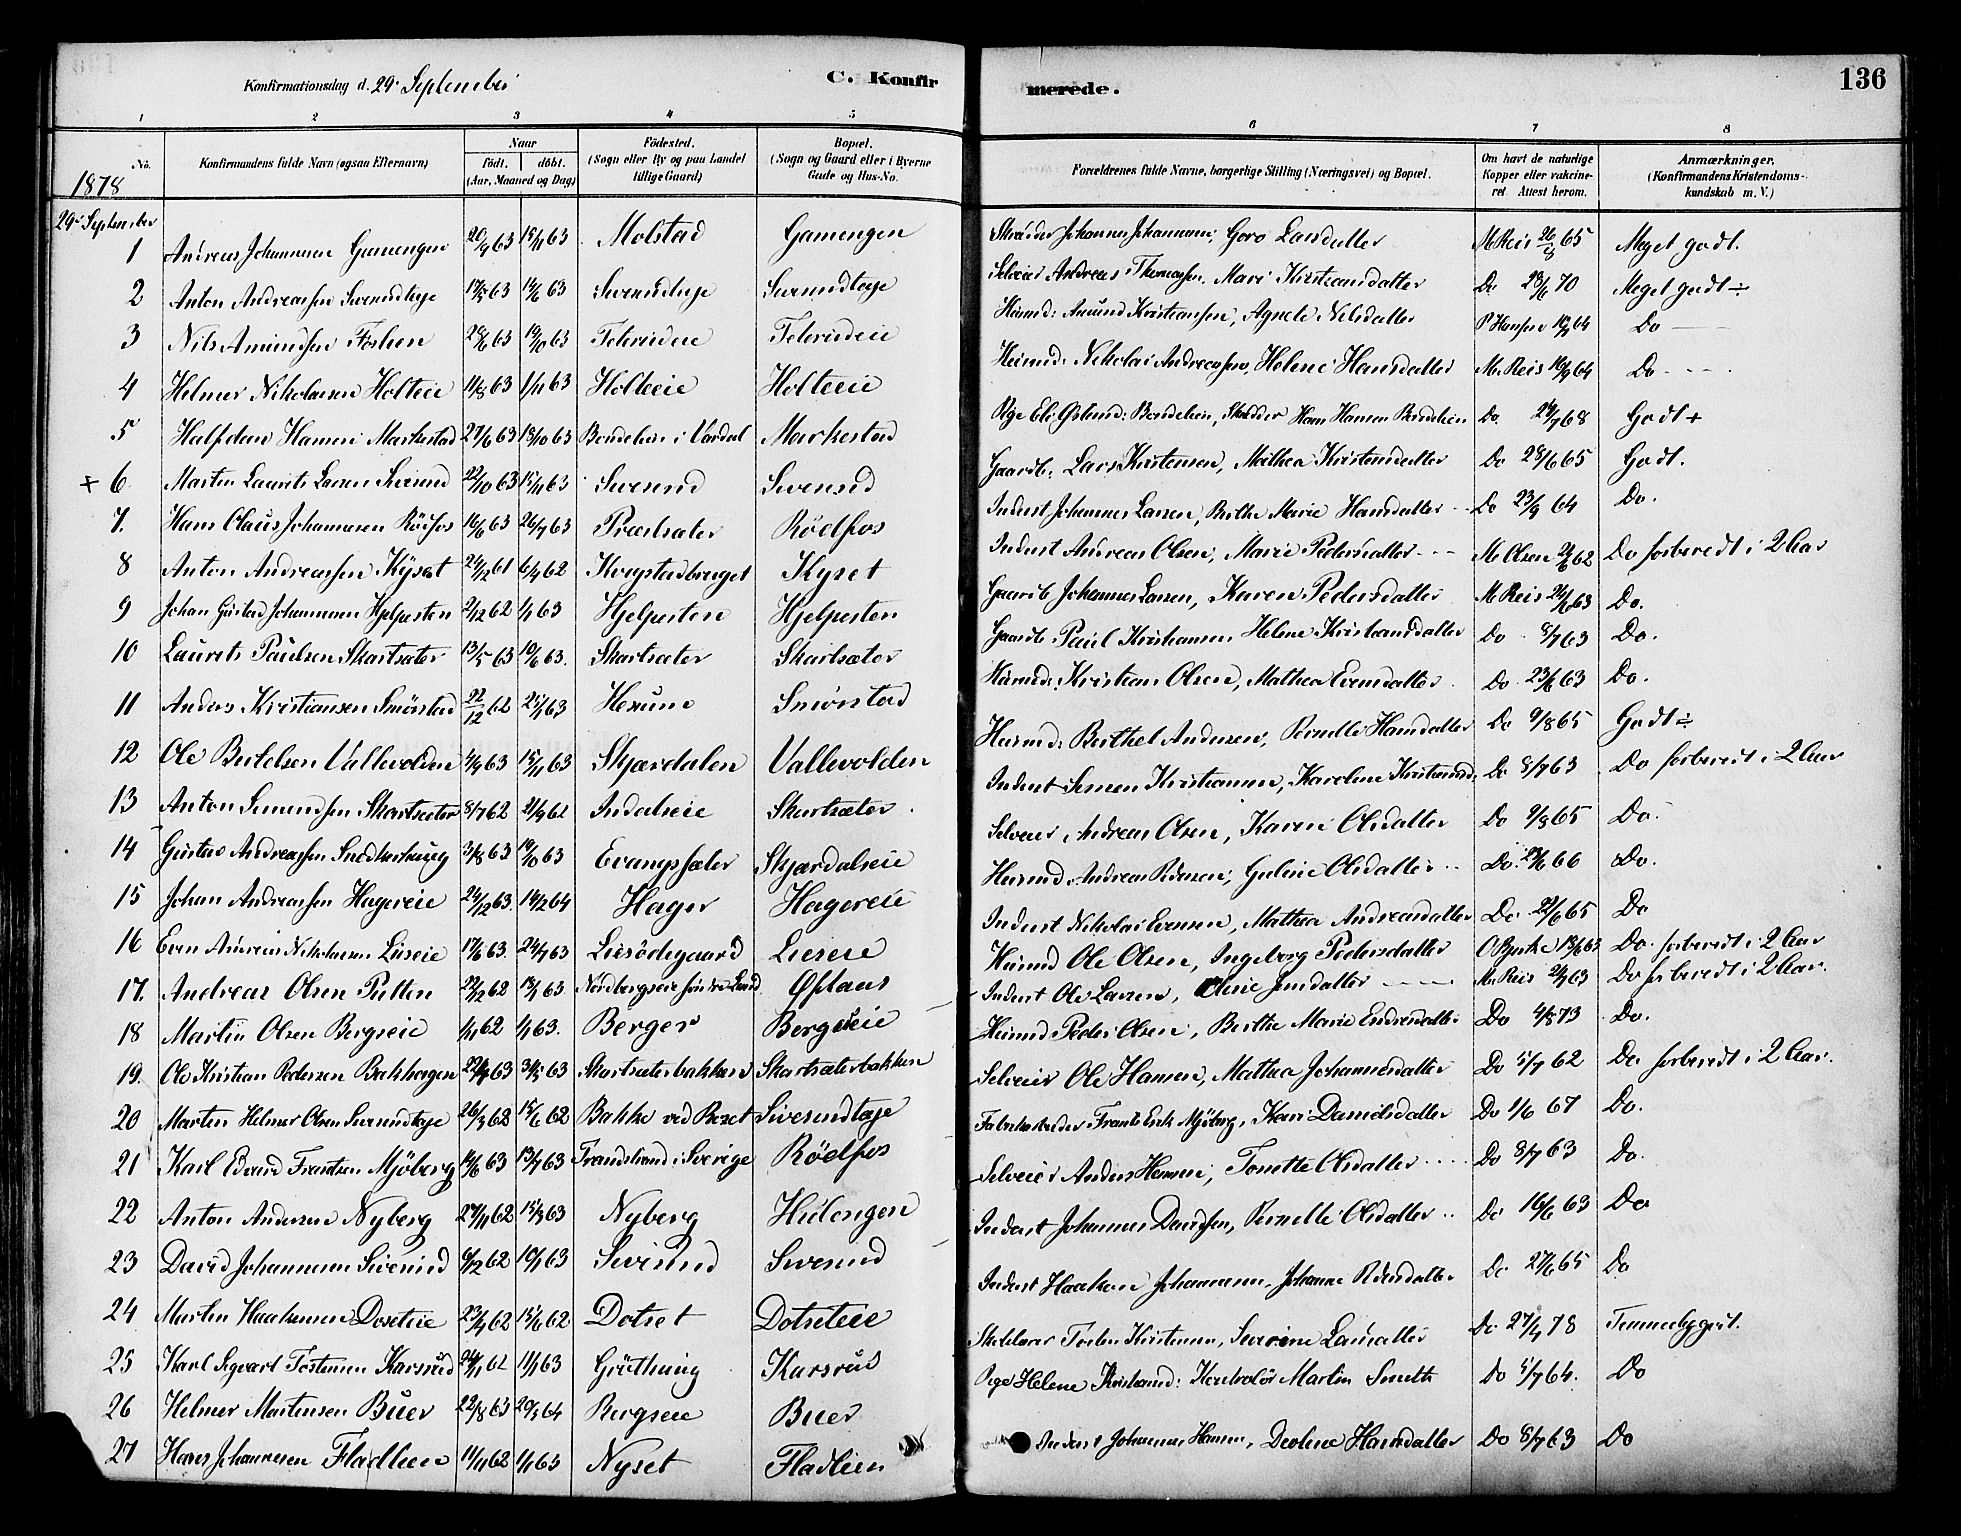 Konfirmationsdag d. 29. September
C. Konfirmerede.
136
1 2 3 4 5 6 7 8
No. Konfirmandens fulde Navn (ogsaa Efternavn) Naar födt. döbt. (Aar, Maaned og Dag) Födested. (Sogn eller By og paa Landet tillige Gaard) Bopæl. (Sogn og Gaard eller i Byerne Gade og Hus-No. Forældrenes fulde Navne, borgerlige Stilling (Næringsvei) og Bopæl. Om havt de naturlige Kopper eller vakcineret. Attest herom. Anmærkninger. (Konfirmandens Kristendomskundskab m. V.)
1878
29. September
1 Andreas Johannesen Gamengen 20/9 63 15/11 63 Molstad Gamengen Skræder Johannes Johannesen, Goro Larsdatter M. Reis 26/8 65 Meget godt.
2 Anton Andreassen Sverudteje 63 14/6 63 Sverudteje Sverudteje Selveier Andreas Thomassen, Mari Kristiansdatter Do 23/6 70 Meget godt ÷
3 Nils Amundsen Foshen 28/6 63 19/10 63 Teterudeie Teterudeie Husmd: Amund Kristiansen, Agnete Nilsdatter P. Hansen 64 Do
4 Helmer Nikolaisen Holteie 11/8 63 1/11 63 Holteeie Holteeie Husmd: Nikolai Andreassen, Helene Hansdatter M. Reis 10/9 64 Do
5 Halfdan Hansen Markestad 27/6 63 18/10 63 Bondelien i Vardal Markestad Pige Eli Bondelien, Skrædder Hans Hansen Bondelien Do. 68 Godt +
+ 6 Martin Laurits Larsen Sverud 22/10 63 15/11 63 Sverud Sverud Gaardb: Lars Kristensen, Mathea Kristensdatter Do 28/6 65 Godt.
7. Hans Olaus Johannesen Rödfos 16/6 63 26/7 63 Præstsæter Rödfos Inderst Johannes Larsen, Berthe Marie Hansdatter Do 23/9 64 Do.
8 Anton Andreassen Kyset 24/12 61 6/4 62 Kyset Inderst Andreas Olsen, Marie Pedersdatter M. Olsen 62 Do forberedt i 2 Aar
9 Johan Gustav Johannesen Hjelpesten 2/12 62 1/1 63 Hjelpesten Hjelpesten Gaardb. Johannes Larsen, Karen Pedersdatter M. Reis 26/6 63 Do.
10 Laurits Paulsen Skartsæter 13/5 63 10/6 63. Skartsæter Skartsæter Gaardb. Paul Kristiansen, Helene Kristiansdatter Do 8/7 63 Do.
11 Anders Kristiansen Smörstad 22/12 62 25/1 63 Hexum Smörstad Husmd: Kristian Olsen, Mathea Evensdatter Do 23/6 63 Do.
12 Ole Bertelsen Vallevolden 4/9 63 15/11 63 Skjærdalen Vallevolden Husmd: Berthel Andersen, Pernelle Hansdatter Do 9/8 65 Godt ÷
13 Anton Simensen Skartsæter 8/7 62 21/9 62 Indalseie Skartsæter Inderst Simen Kristiansen, Karoline Kristiansd: Do 8/7 63 Do forberedt i 2 Aar
14 Gustav Andreassen Snedkerhaug 3/8 63 19/10 63 Evangsæter Skjærdalseie Selveier Andreas Olsen, Karen Olsdatter Do 9/8 65 Do.
15 Johan Andreassen Hagereie 24/12 63. 14/2 64 Hager Hagereie Husmd. Andreas Pedersen, Guline Olsdatter Do. 66 Do.
16 Even Andreas Nikolaisen Lieseie 17/6 63. 24/7 63 Liesödegaard Lieseie Inderst Nikolai Evensen, Mathea Andreasdatter Do. 65 Do
17. Andreas Olsen Putten 62 63 Nordbergseie söndre Land Öfstaas Husmd Ole Olsen, Ingeborg Pedersdatter O. Bjerke 63 Do. forberedt i 2 Aar
18 Martin Olsen Bergseie 1/11 62 1/1 63. Berger Bergseie Inderst Ole Larsen, Oline Jensdatter M. Reis 63 Do forberedt i 2 Aar.
19. Ole Kristian Pedersen Bakhagen 63 63 Skartsæterbakken Skartsæterbakken Husmd Peder Olsen, Berthe Marie Endresdatter Do 4/8 73 Do.
20 Martin Helmer Olsen Sverudteje 26/3 62 15/6 62 Bakke ved Sverudteje Selveier Ole Hansen, Mathea Johannesdatter Do 5/7 62 Do forberedt i 2 Aar.
21 Karl Edvard Frantsen Mjöberg 14/6 63 19/7 63 Transtrand i Sverige Rödfos Fabrikarbeider Frants Erik Mjöberg, Kari Danielsdatter Do 1/6 67 Do.
22 Anton Andersen Nyberg 27/11 62 15/3 63 Nyberg Selveier Anders Hansen, Tonette Olsdatter Do 8/7 63 Do.
23 David Johannesen Sverud 6/12 62 10/1 63 Sverud Sverud Inderst Johannes Davidsen, Pernelle Olsdatter Do 16/6 63 Do
24 Martin Haakensen Dotseteie 23/4 62 15/6 62 Dotset Dotseteie Inderst Haaken Johannesen, Johanne Do 27/6 65 Do
25 Karl Sigvart Torstensen Karsrud 62 1/1 63 Karsrud Skolelærer Torsten Kristensen, Severine Larsdatter Do 27/9 78 Temmelig godt.
26 Helmer Martinsen Buer 22/8 63 64 Bergseie Buer Pige Helene Kristiansd: Kontrolör Martin Smith Do 5/7 64. Do
27 Hans Johannesen Fladlien 11/11 62 1/1 63 Nyset Fladlien Inderst Johannes Hansen, Hansdatter Do 8/7 63 Do